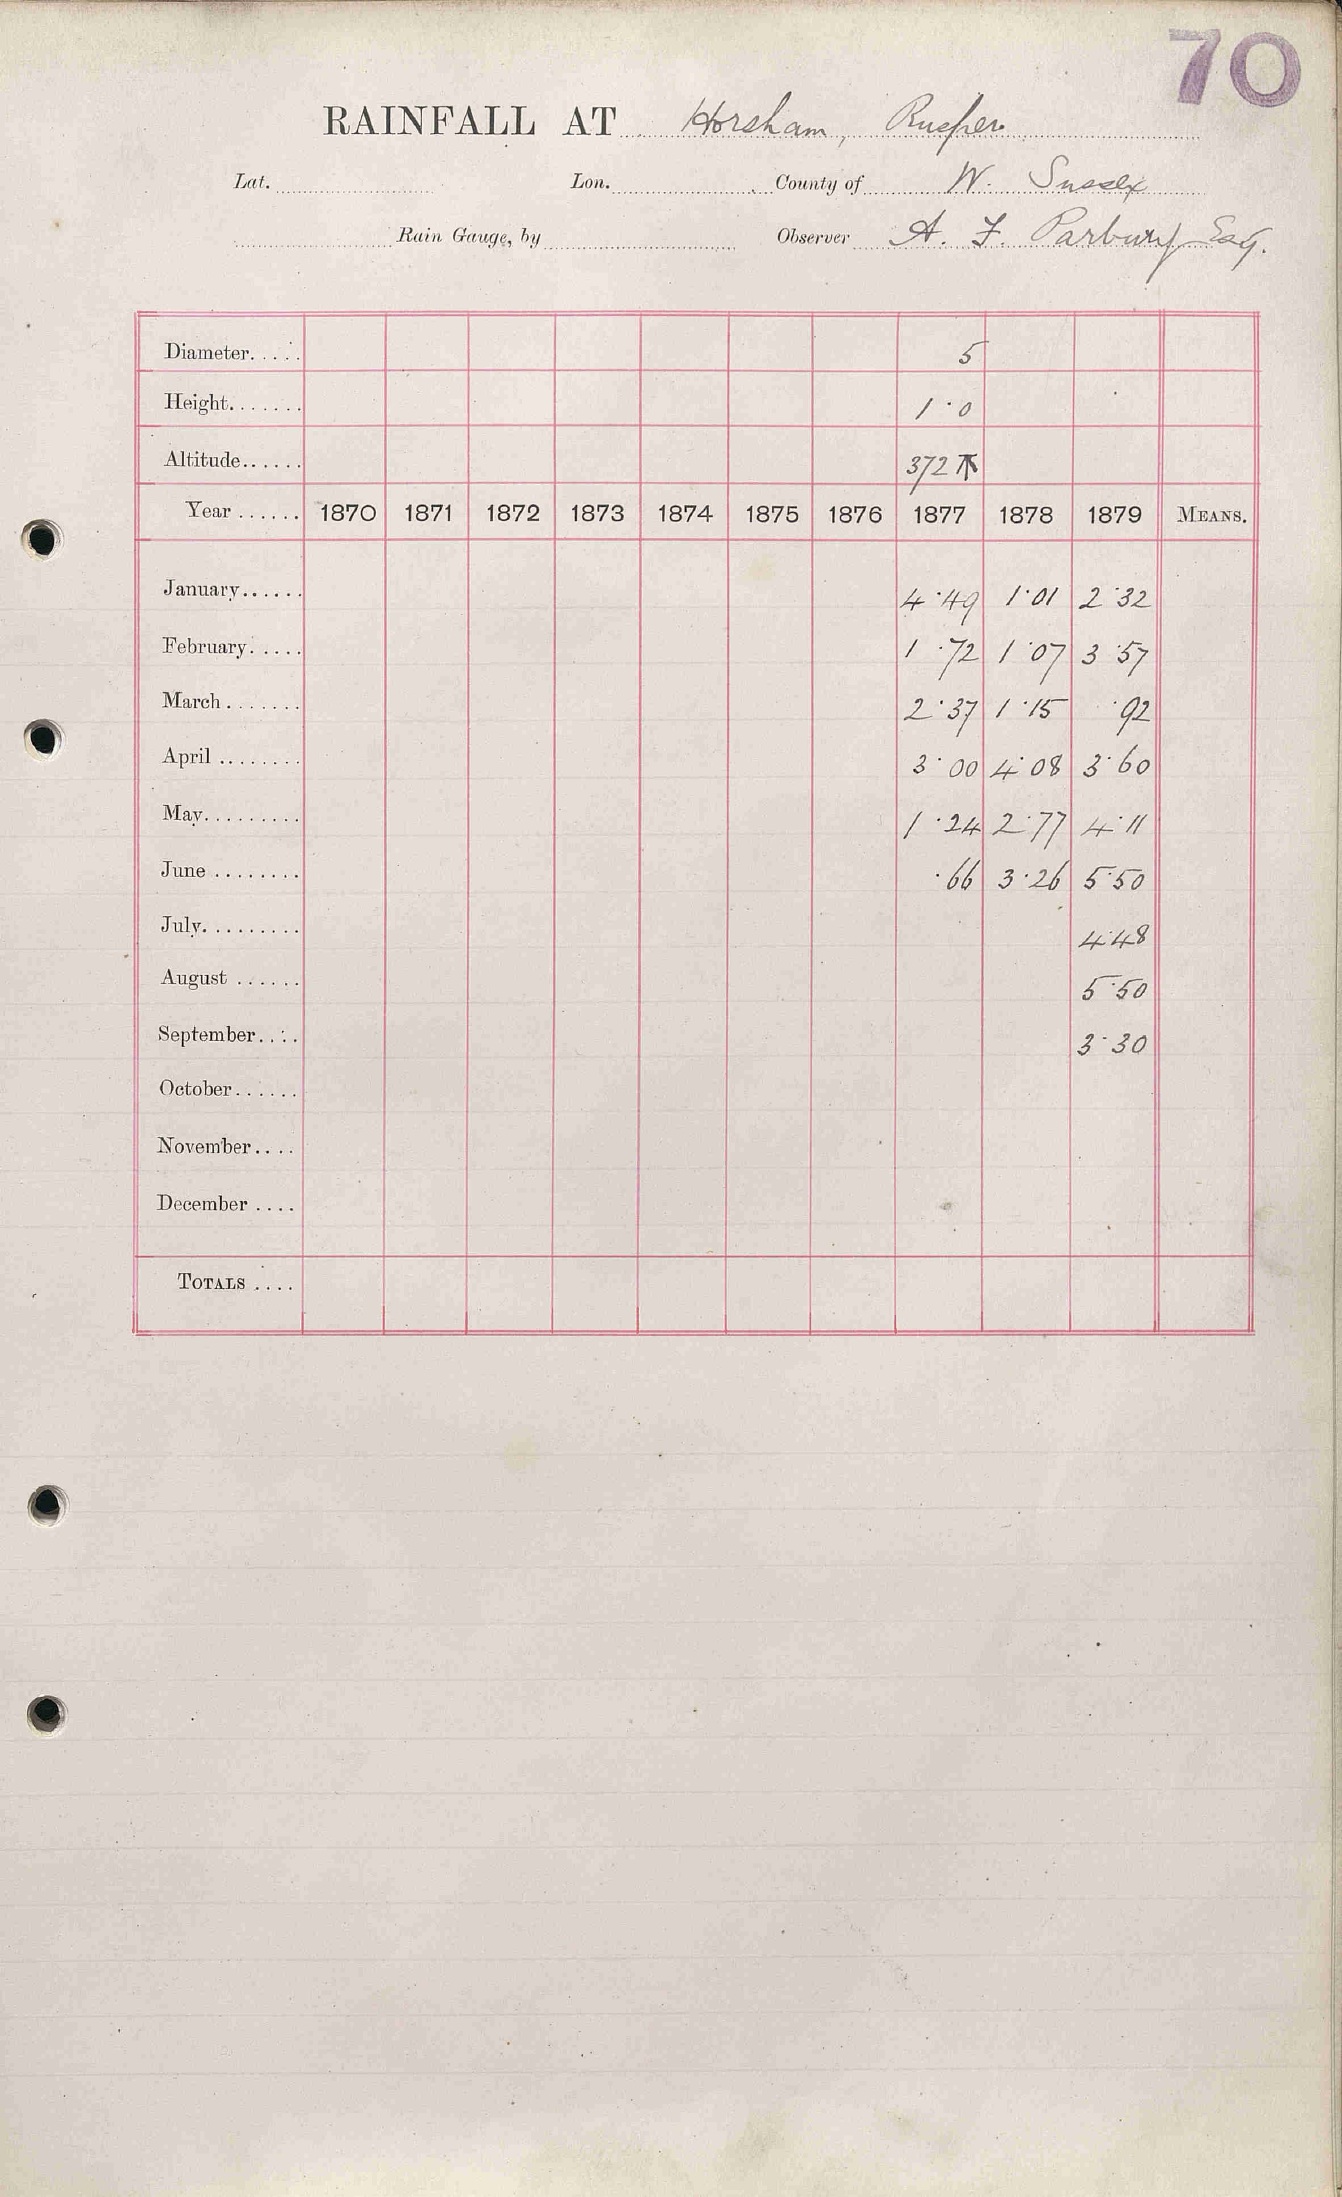 70
RAINFALL AT Horsham, Rusper
Lat. Lon. County of W. Sussex
Rain Gauge, by Observer A. F. Parbury Esq.
Diameter 5
Height 1·0
Altitude 372
Year 1870 1871 1872 1873 1874 1875 1876 1877 1878 1879 MEANS.
January 4·49 1·01 2·32
February 1·72 1·07 3·57
March 2·37 1·15 ·92
April 3·00 4·08 3·60
May 1·24 2·77 4·11
June ·66 3·26 5·50
July 4·48
August 5·50
September 3·30
October
November
December
TOTALS